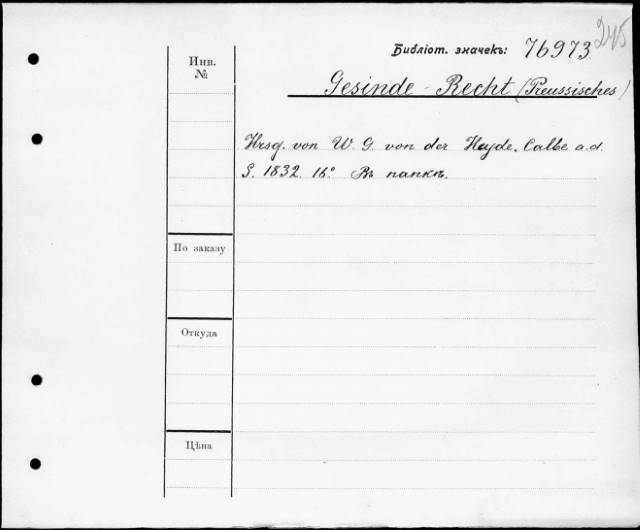 245
Библіот. значекъ: 76973
Инв.
№
Gesinde-Recht (Preussisches)
Hrsg. von W. G. von der Heyde. Calbe a.d.
S. 1832. 16° Въ папкѣ.
По заказу
Откуда
Цѣна